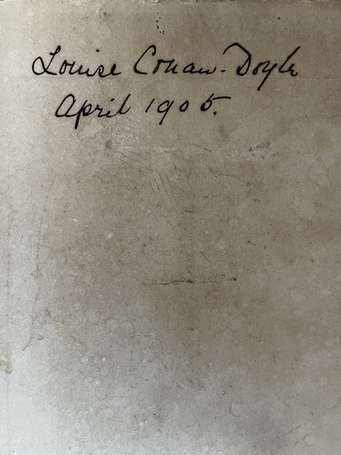 Louise Conan-Doyle
April 1905.